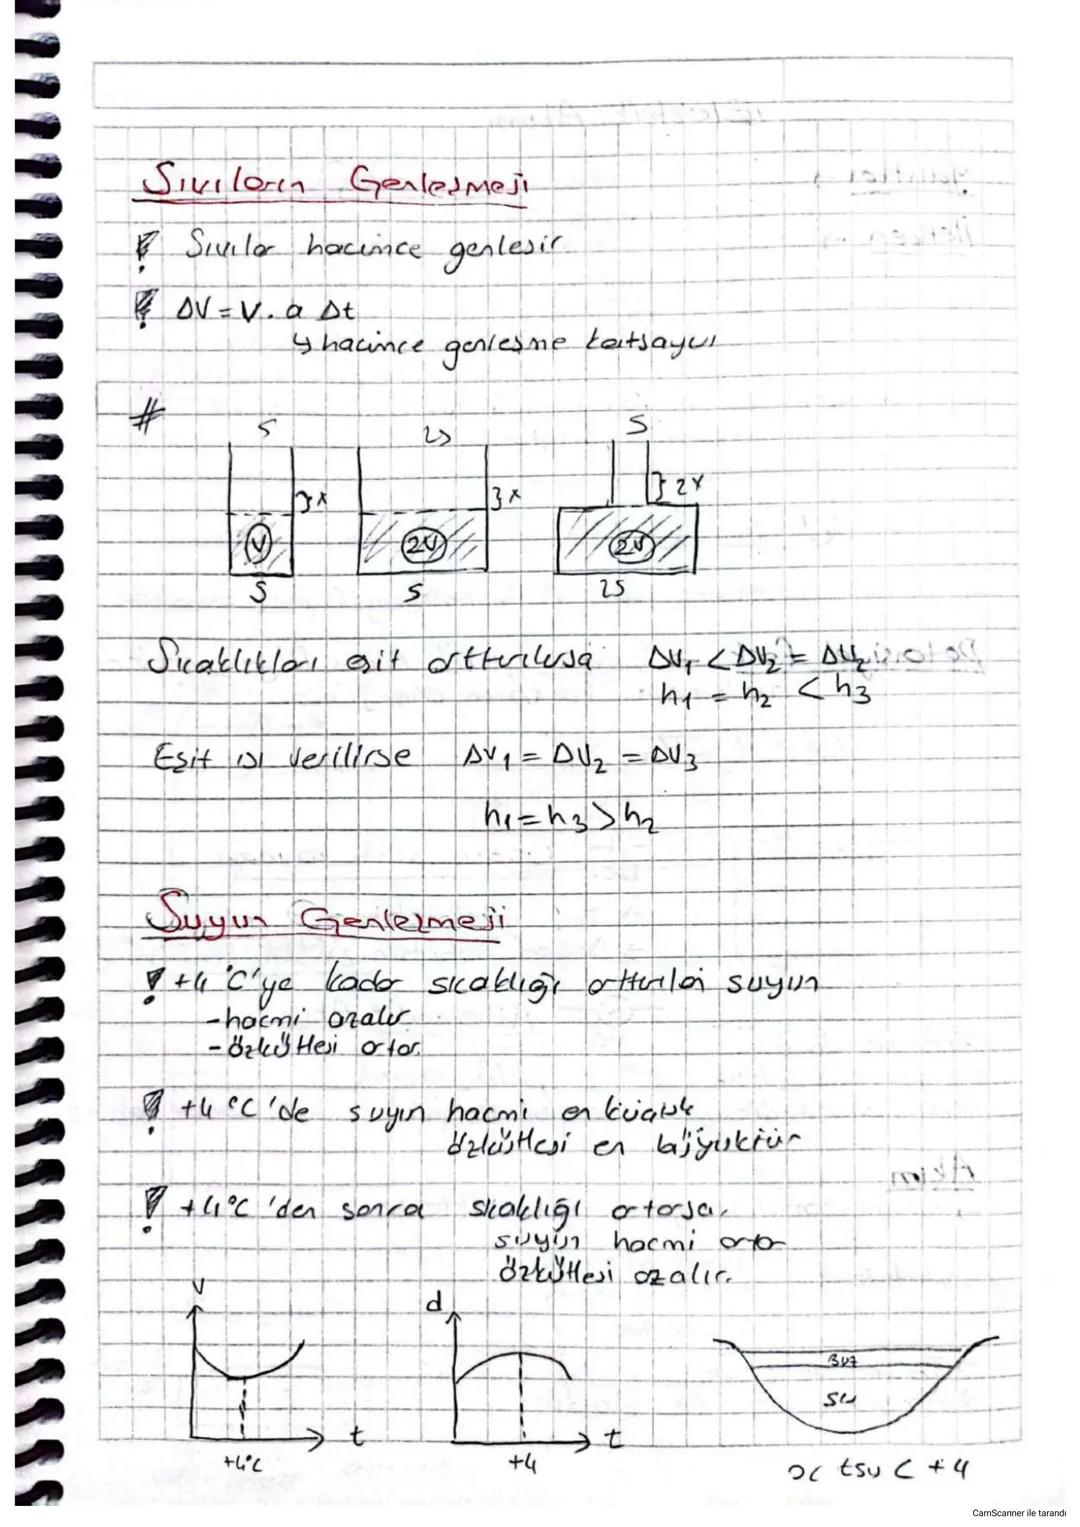 Sıvıların Genleşmesi
! Sıvılar hacimce genleşir
! ΔV = V. a Δt
↳ hacimce genleşme katsayısı
#
S 2S S
}x }x }2x
V 2V 2V
S S 2S
Sıcaklıkları eşit arttırılırsa ΔV₁ < ΔV₂ = ΔV₂
h₁ = h₂ < h₃
Eşit ısı verilirse ΔV₁ = ΔV₂ = ΔV₃
h₁ = h₃ > h₂
Suyun Genleşmesi
! +4 °C'ye kadar sıcaklığı arttırılan suyun
- hacmi azalır
- özkütlesi artar.
! +4 °C 'de suyun hacmi en küçük
özkütlesi en büyüktür
! +4°C 'den sonra sıcaklığı artarsa,
suyun hacmi artar
özkütlesi azalır.
V d
Buz
su
t t
+4°C +4 0< tsu < +4
CamScanner ile tarandı